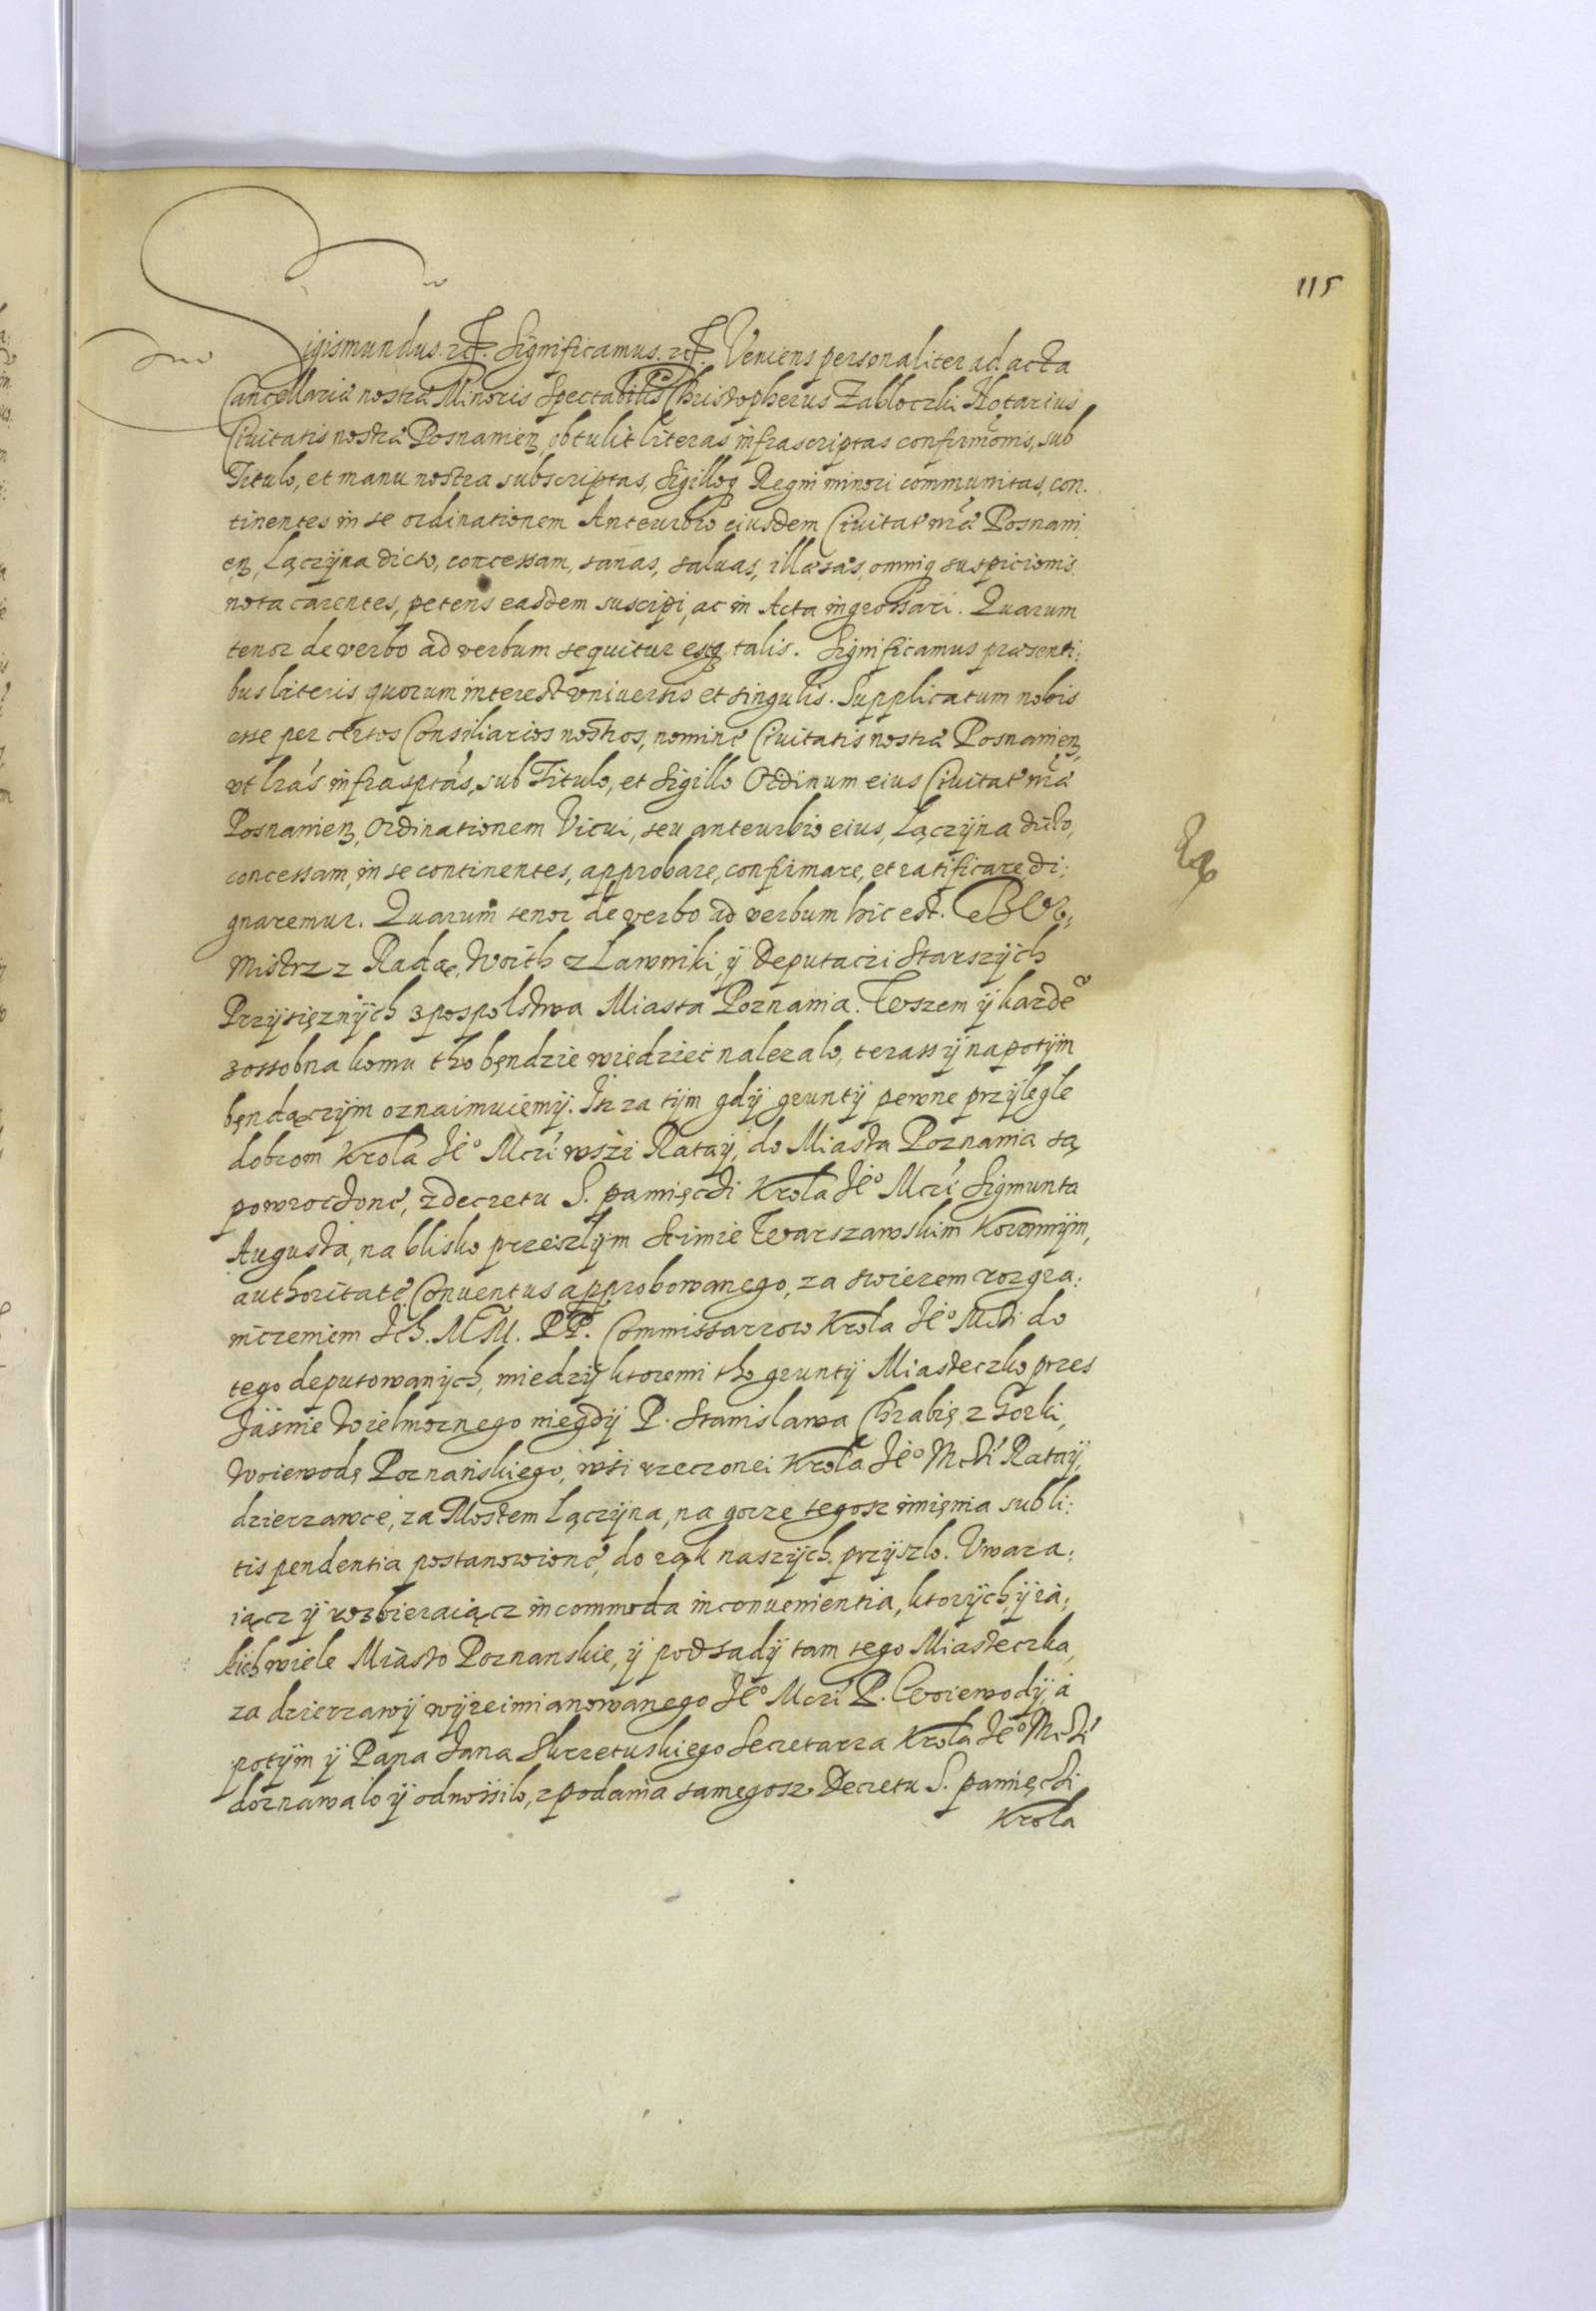 115
Sigismundus. etc. Significamus. etc. Veniens personaliter ad acta
Cancellariæ nostræ Minoris Spectabilis Christopherus Zabloczki Notarius
Ciuitatis nostræ Posnanien, obtulit literas infrascriptas confirmōnis, sub
Titulo, et manu nostra subscriptas, Sigilloq Regni minori communitas, con.
tinentes in se ordinationem Anteurbio eiusdem Ciuitat nræ Posnani
en, Lączÿna dicto, concessam, sanas, saluas, illæsas, omniq suspicionis
nota carentes, petens easdem suscipi, ac in Acta ingrossari. Quarum
tenor de verbo ad verbum sequitur estq talis. Significamus præsenti:
bus literis quorum interest vniuersis et singulis. Supplicatum nobis
esse per certos Consiliarios nostros, nomine Ciuitatis nostræ Posnanien,
vt lrás infrasptás, sub Titulo, et Sigillo Ordinum eius Ciuitat nræ
Posnanien, Ordinationem Vicui, seu anteurbio eius, Lączÿna dicto,
concessam, in se continentes, approbare, confirmare, et ratificare di:
gnaremur. Quarum tenor de verbo ad verbum hic est. Bor,
mistrz z Radąę, Woith z Lawniki, ÿ Deputaczi Starszÿch
Przÿsięznÿch z pospolstwa Miasta Poznania. Wszem ÿ kazdē
zossobna komu tho bęndzie wiedzieć nalezalo, terass ÿ napotÿm
bęndączÿm oznaimuiemÿ. Isz za tÿm gdÿ gruntÿ pewne przÿlegle
dobrom Krola Je° Mczi wszi Rataÿ, do Miasta Poznania są
powrocdone, z decretu S. pamięczi Krola Je° Mczi Sigmunta
Augusta, na blisko przeszlÿm Seimie Warszawskim Koronnÿm,
authoritate Conuentus approbowanego, za swiezem rozgra:
niczeniem Ich. M M. PP. Commissarzow Krola Je° Mczi do
tego deputowanÿch, miedzÿ ktoremi tho gruntÿ Miasteczko przes
Jasnie Wielmoznego niegdÿ P. Stanislawa Chrabię z Gorki,
Woiewodę Poznańskiego, wsi rzeczonei Krola Je° Mczi Rataÿ,
dzierzawce, za Mostem Lączÿna, na gorze tegosz imięnia sub li:
tis pendentia postanowione, do rąk naszÿch przÿszlo. Vwaza:
iącz ÿ rozbieraiącz incommoda inconuenientia, ktorÿch ÿ ia:
kich wiele Miasto Poznanskie, ÿ podsadÿ tam tego Miasteczka,
za dzierzawÿ wÿzeimianowanego Je° Mczi P. Woiewodÿ, a
potÿm ÿ Pana Jana Skrzetuskiego Secretarza Krola Je° Mczi
doznawalo ÿ odnosilo, z podania samegosz Decretu S. pamięczi
Krola